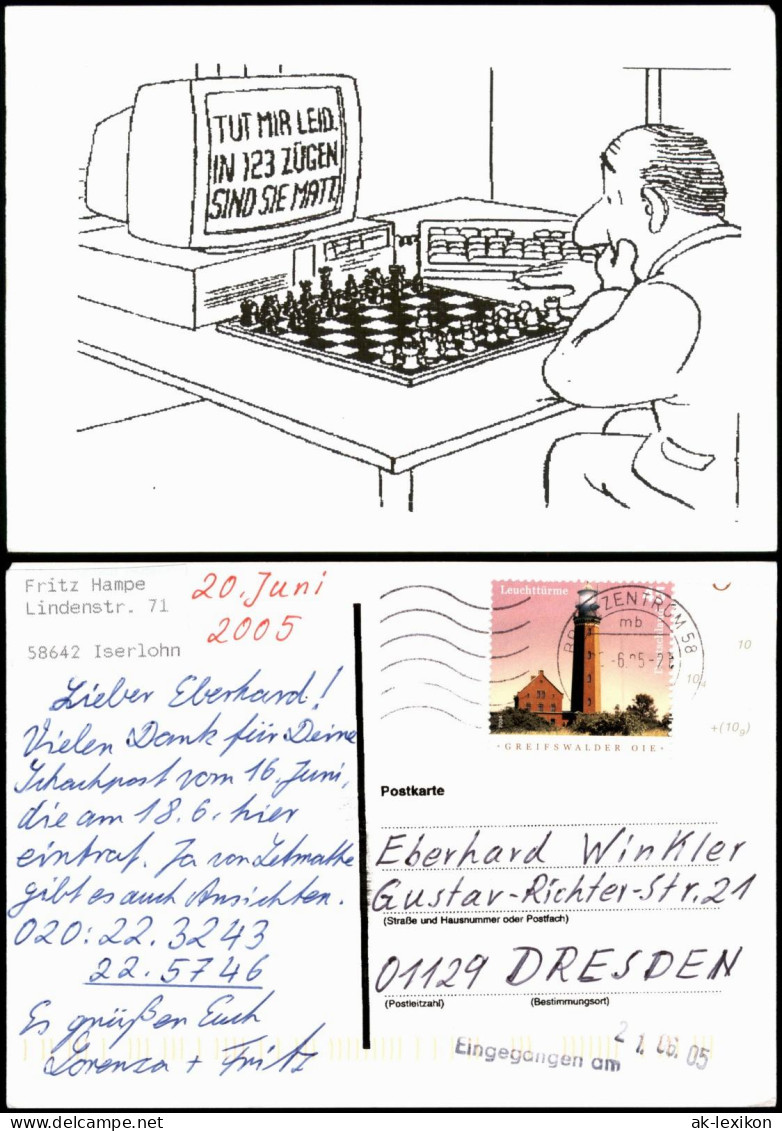 TUT MIR LEID.
IN 123 ZÜGEN
SIND SIE MATT.
Fritz Hampe
Lindenstr. 71
58642 Iserlohn
20. Juni
2005
Lieber Eberhard!
Vielen Dank für Deine
Schachpost vom 16. Juni,
die am 18.6. hier
eintraf. Ja von Letmathe
gibt es auch Ansichten.
020: 22. 3243
22. 5746
Es grüßen Euch
Lorenza + Fritz
Leuchttürme
Deutschland
GREIFSWALDER OIE
BRIEFZENTRUM 58
mb
10
+(10g)
Postkarte
Eberhard Winkler
Gustav-Richter-Str. 21
(Straße und Hausnummer oder Postfach)
01129 DRESDEN
(Postleitzahl) (Bestimmungsort)
Eingegangen am 21. 06. 05
ak-lexikon